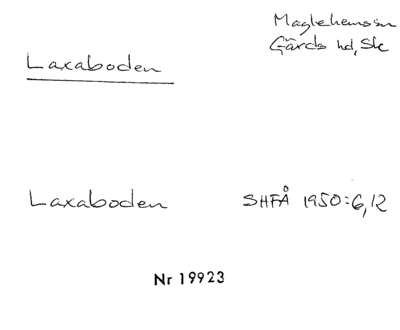 Maglehems sn
Gärds hd, Sk
Laxaboden
Laxaboden SHFÅ 1950:6,12
Nr 19923